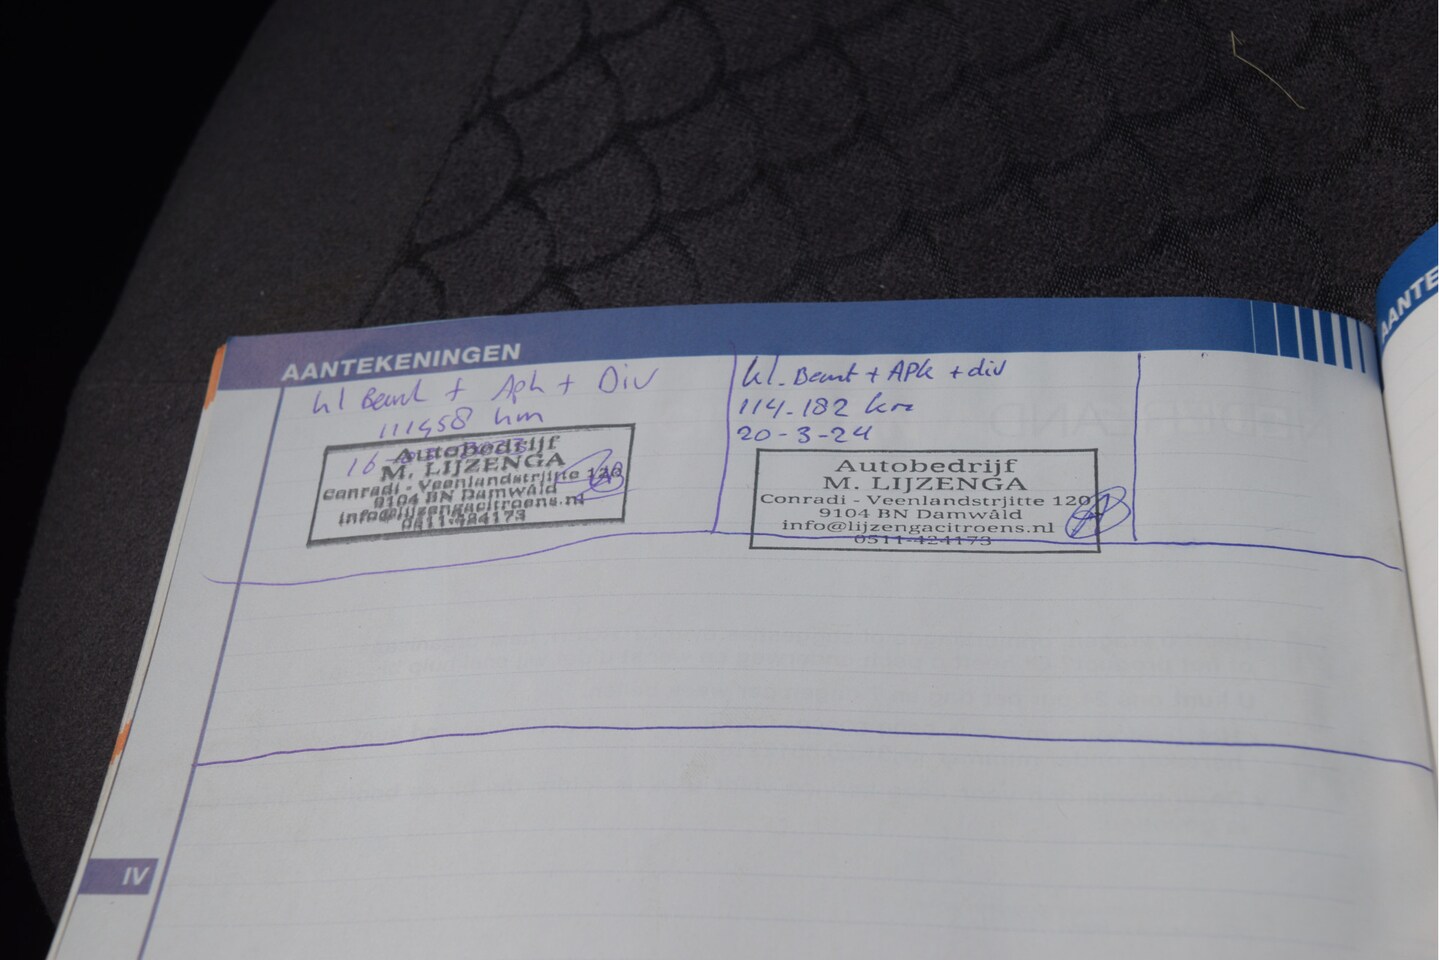 AANTEKENINGEN
kl Beurt + Apk + Div
111458 km
16
Autobedrijf
M. LIJZENGA
Conradi - Veenlandstrjitte 120
9104 BN Damwâld
info@lijzengacitroens.nl
0511-424173
kl. Beurt + APk + div
114.182 km
20-3-24
Autobedrijf
M. LIJZENGA
Conradi - Veenlandstrjitte 120
9104 BN Damwâld
info@lijzengacitroens.nl
0511-424173
AANTE
IV